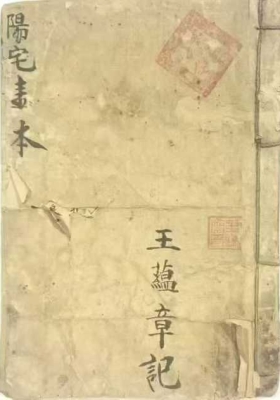 陽宅書本
王蘊章記